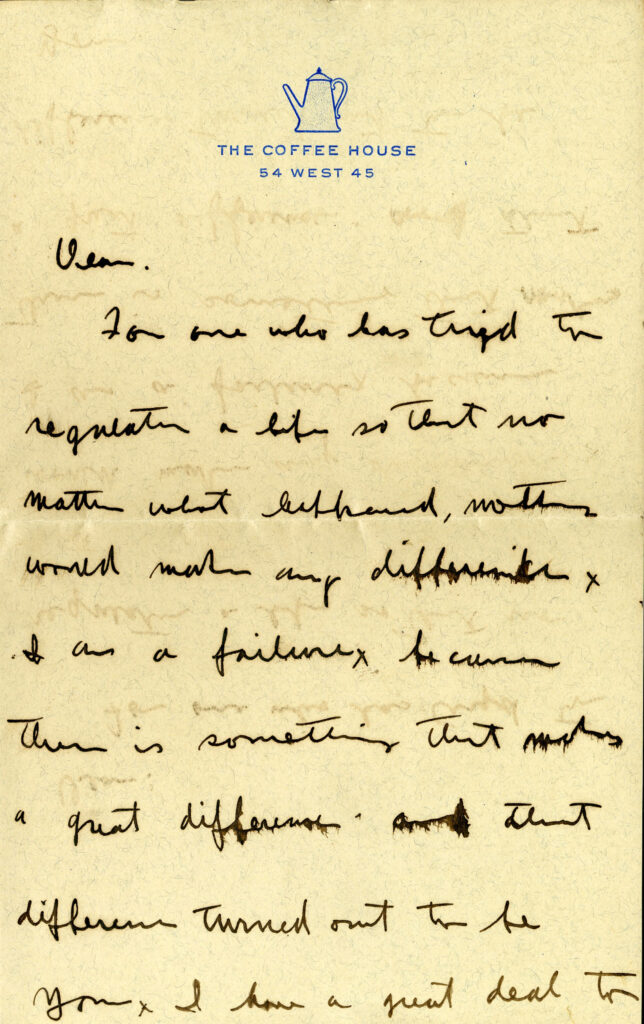 THE COFFEE HOUSE
54 WEST 45
Dear.
For one who has tryd to
regulate a life so that no
matter what happened, nothing
would make any difference x
I am a failure x because
there is something that makes
a great difference. and that
difference turned out to be
You x I have a great deal to